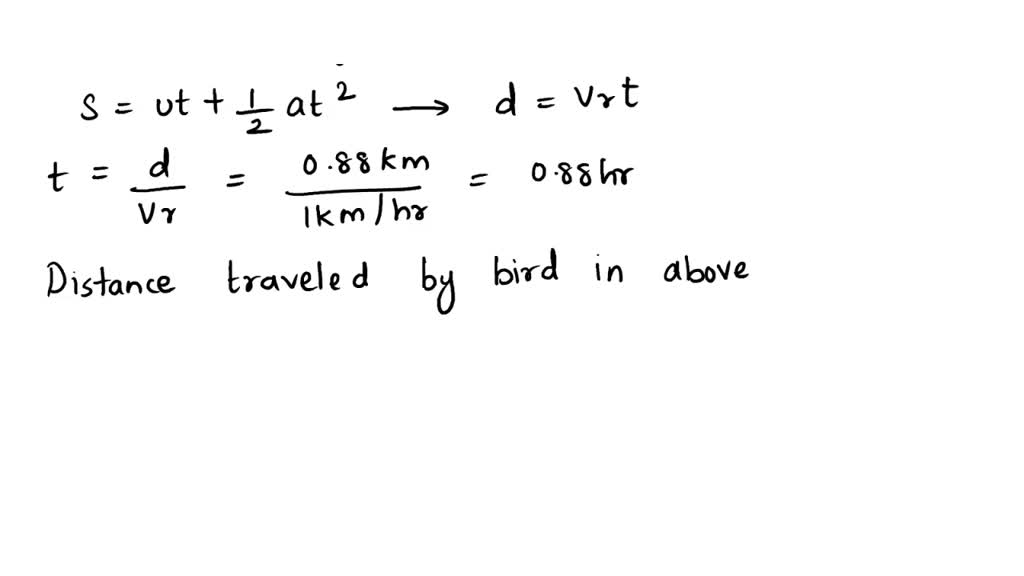 S = ut + 1/2 at² → d = vr t
t = d/vr = 0.88km/1km/hr = 0.88hr
Distance traveled by bird in above